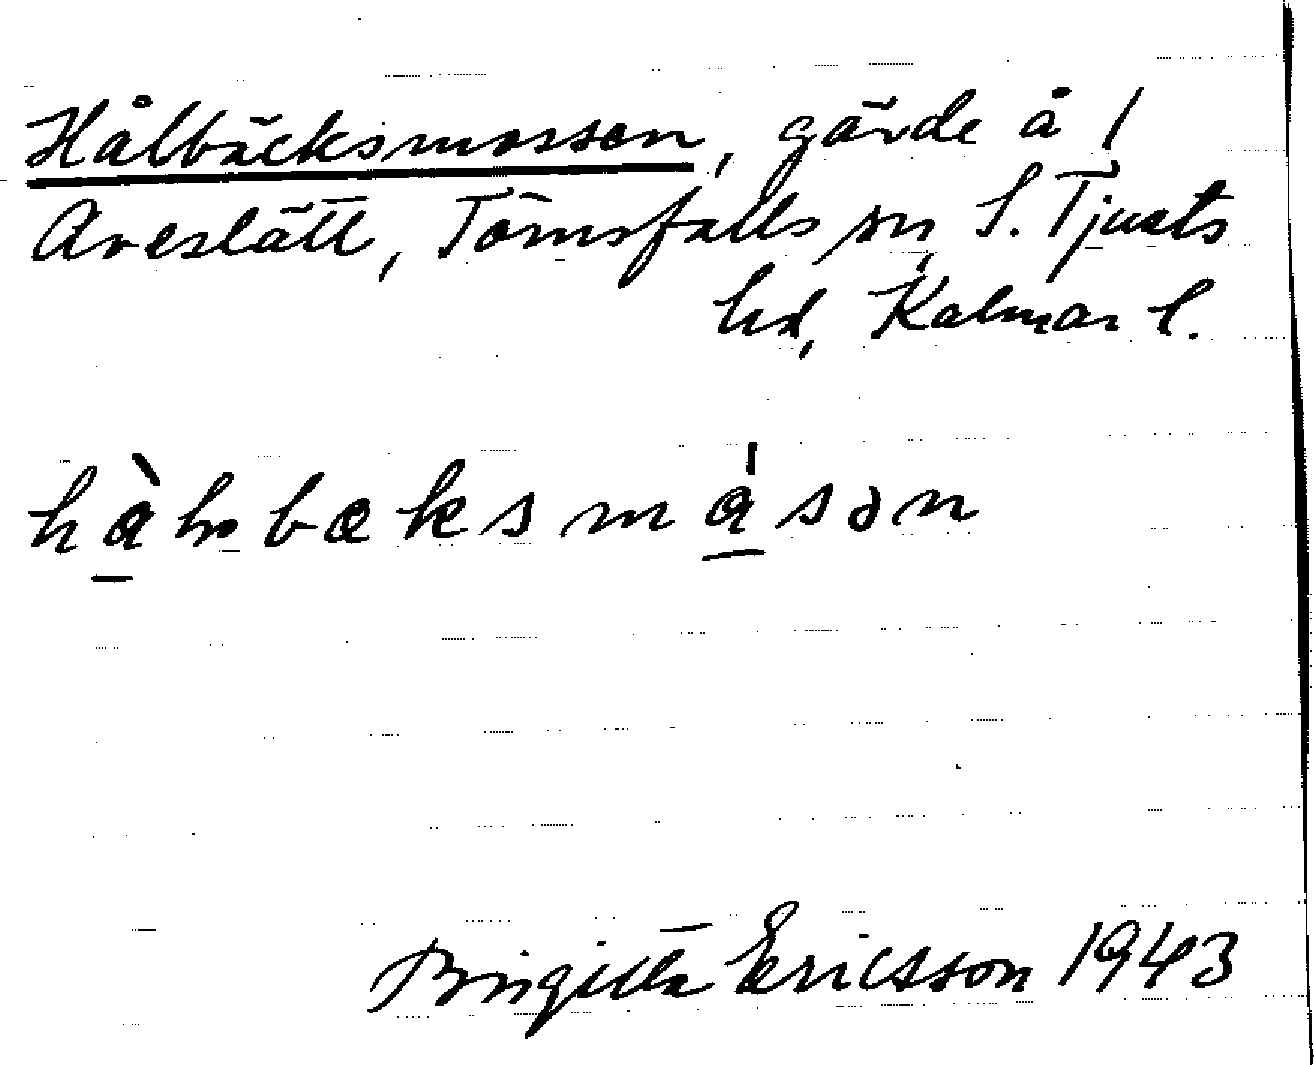 Hålbäcksmossen, gärde å 1
Aveslätt, Törnsfalls sn, S. Tjusts
hd, Kalmar l.
bæksmåsən
Birgitta Ericsson 1943